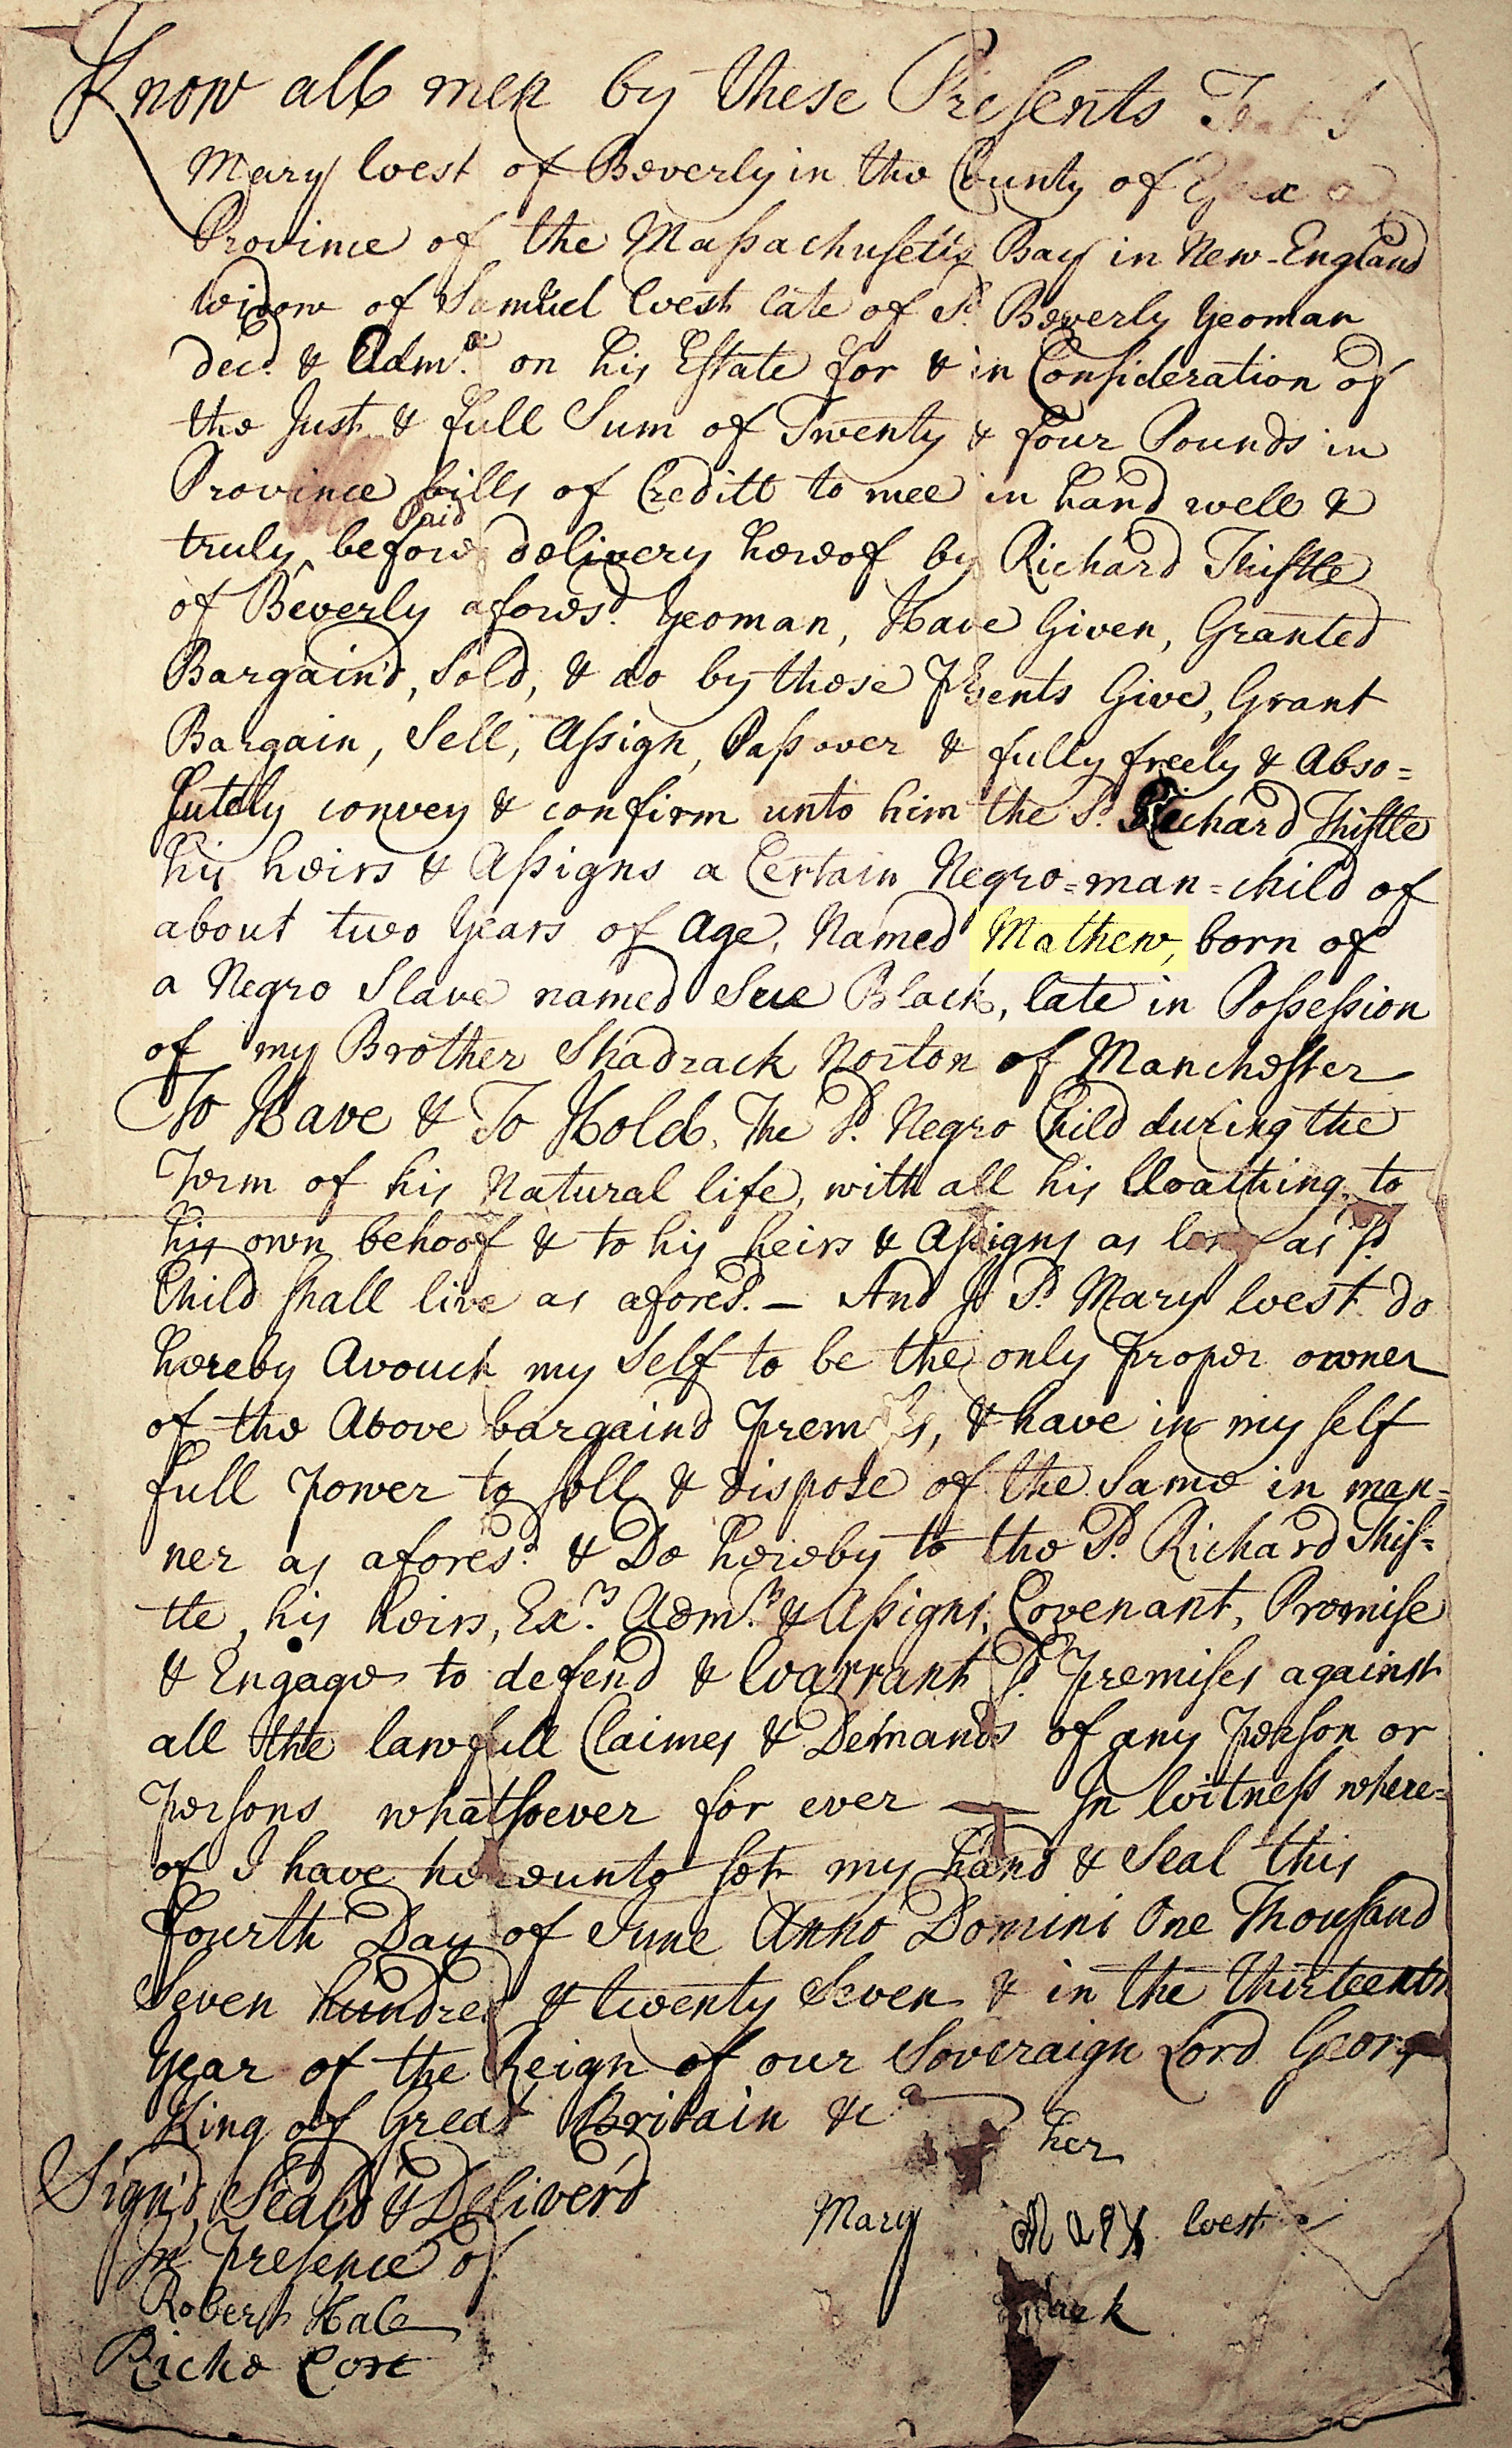 Know all men by these Presents That I
Mary West of Beverly in the County of Essex
Province of the Massachusetts Bay in New-England
Widow of Samuel West late of sd. Beverly Yeoman
decd. & Admx. on his Estate for & in Consideration of
the Just & full Sum of Twenty & four Pounds in
Province bills of Creditt to mee in hand well &
Paid
truly ^ before delivery hereof by Richard Thistle
of Beverly aforesd. Yeoman, Have Given, Granted
Bargain'd, Sold, & do by these Presents Give, Grant
Bargain, Sell, Assign, Pass over & fully freely & Abso=
lutely convey & confirm unto him the sd. Richard Thistle
his heirs & Assigns a Certain Negro=man=child of
about two Years of Age, Named Mathew, born of
a Negro Slave named Sue Black, late in Possession
of my Brother Shadrack Norton of Manchester
To Have & To Hold, The sd. Negro Child during the
Term of his Natural life, with all his Cloathing, to
his own behoof & to his heirs & Assigns as long as sd.
Child shall live as aforesd. — And I sd. Mary West do
hereby Avouch my Self to be the only proper owner
of the Above bargaind premises, & have in my self
full power to sell & dispose of the Same in man=
ner as aforesd. & Do hereby to the sd. Richard This=
tle, his heirs, Exrs. Admrs. & Assigns, Covenant, Promise
& Engage to defend & Warrant sd. premises against
all the lawfull Claimes & Demands of any person or
persons whatsoever for ever — In Witness where=
of I have hereunto set my hand & Seal this
fourth Day of June Anno Domini One Thousand
Seven hundred & twenty Seven & in the thirteenth
Year of the Reign of our Soveraign Lord George
King of Great Britain &ca
her
Sign'd, Seal'd & Deliver'd
Mary Mary West
In presence of
mark
Robert Hale